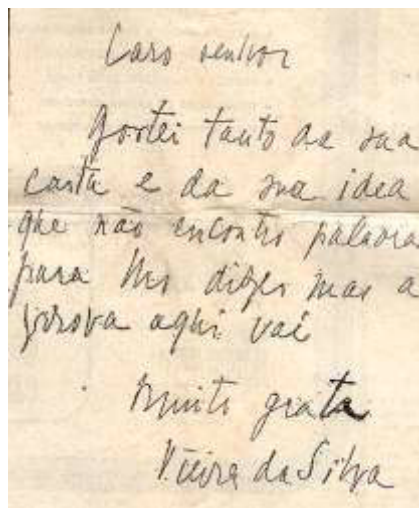 Caro senhor
Gostei tanto da sua
carta e da sua idea
que não encontro palavra
para lho dizer mas a
prova aqui vai
Muito grata
Vieira da Silva